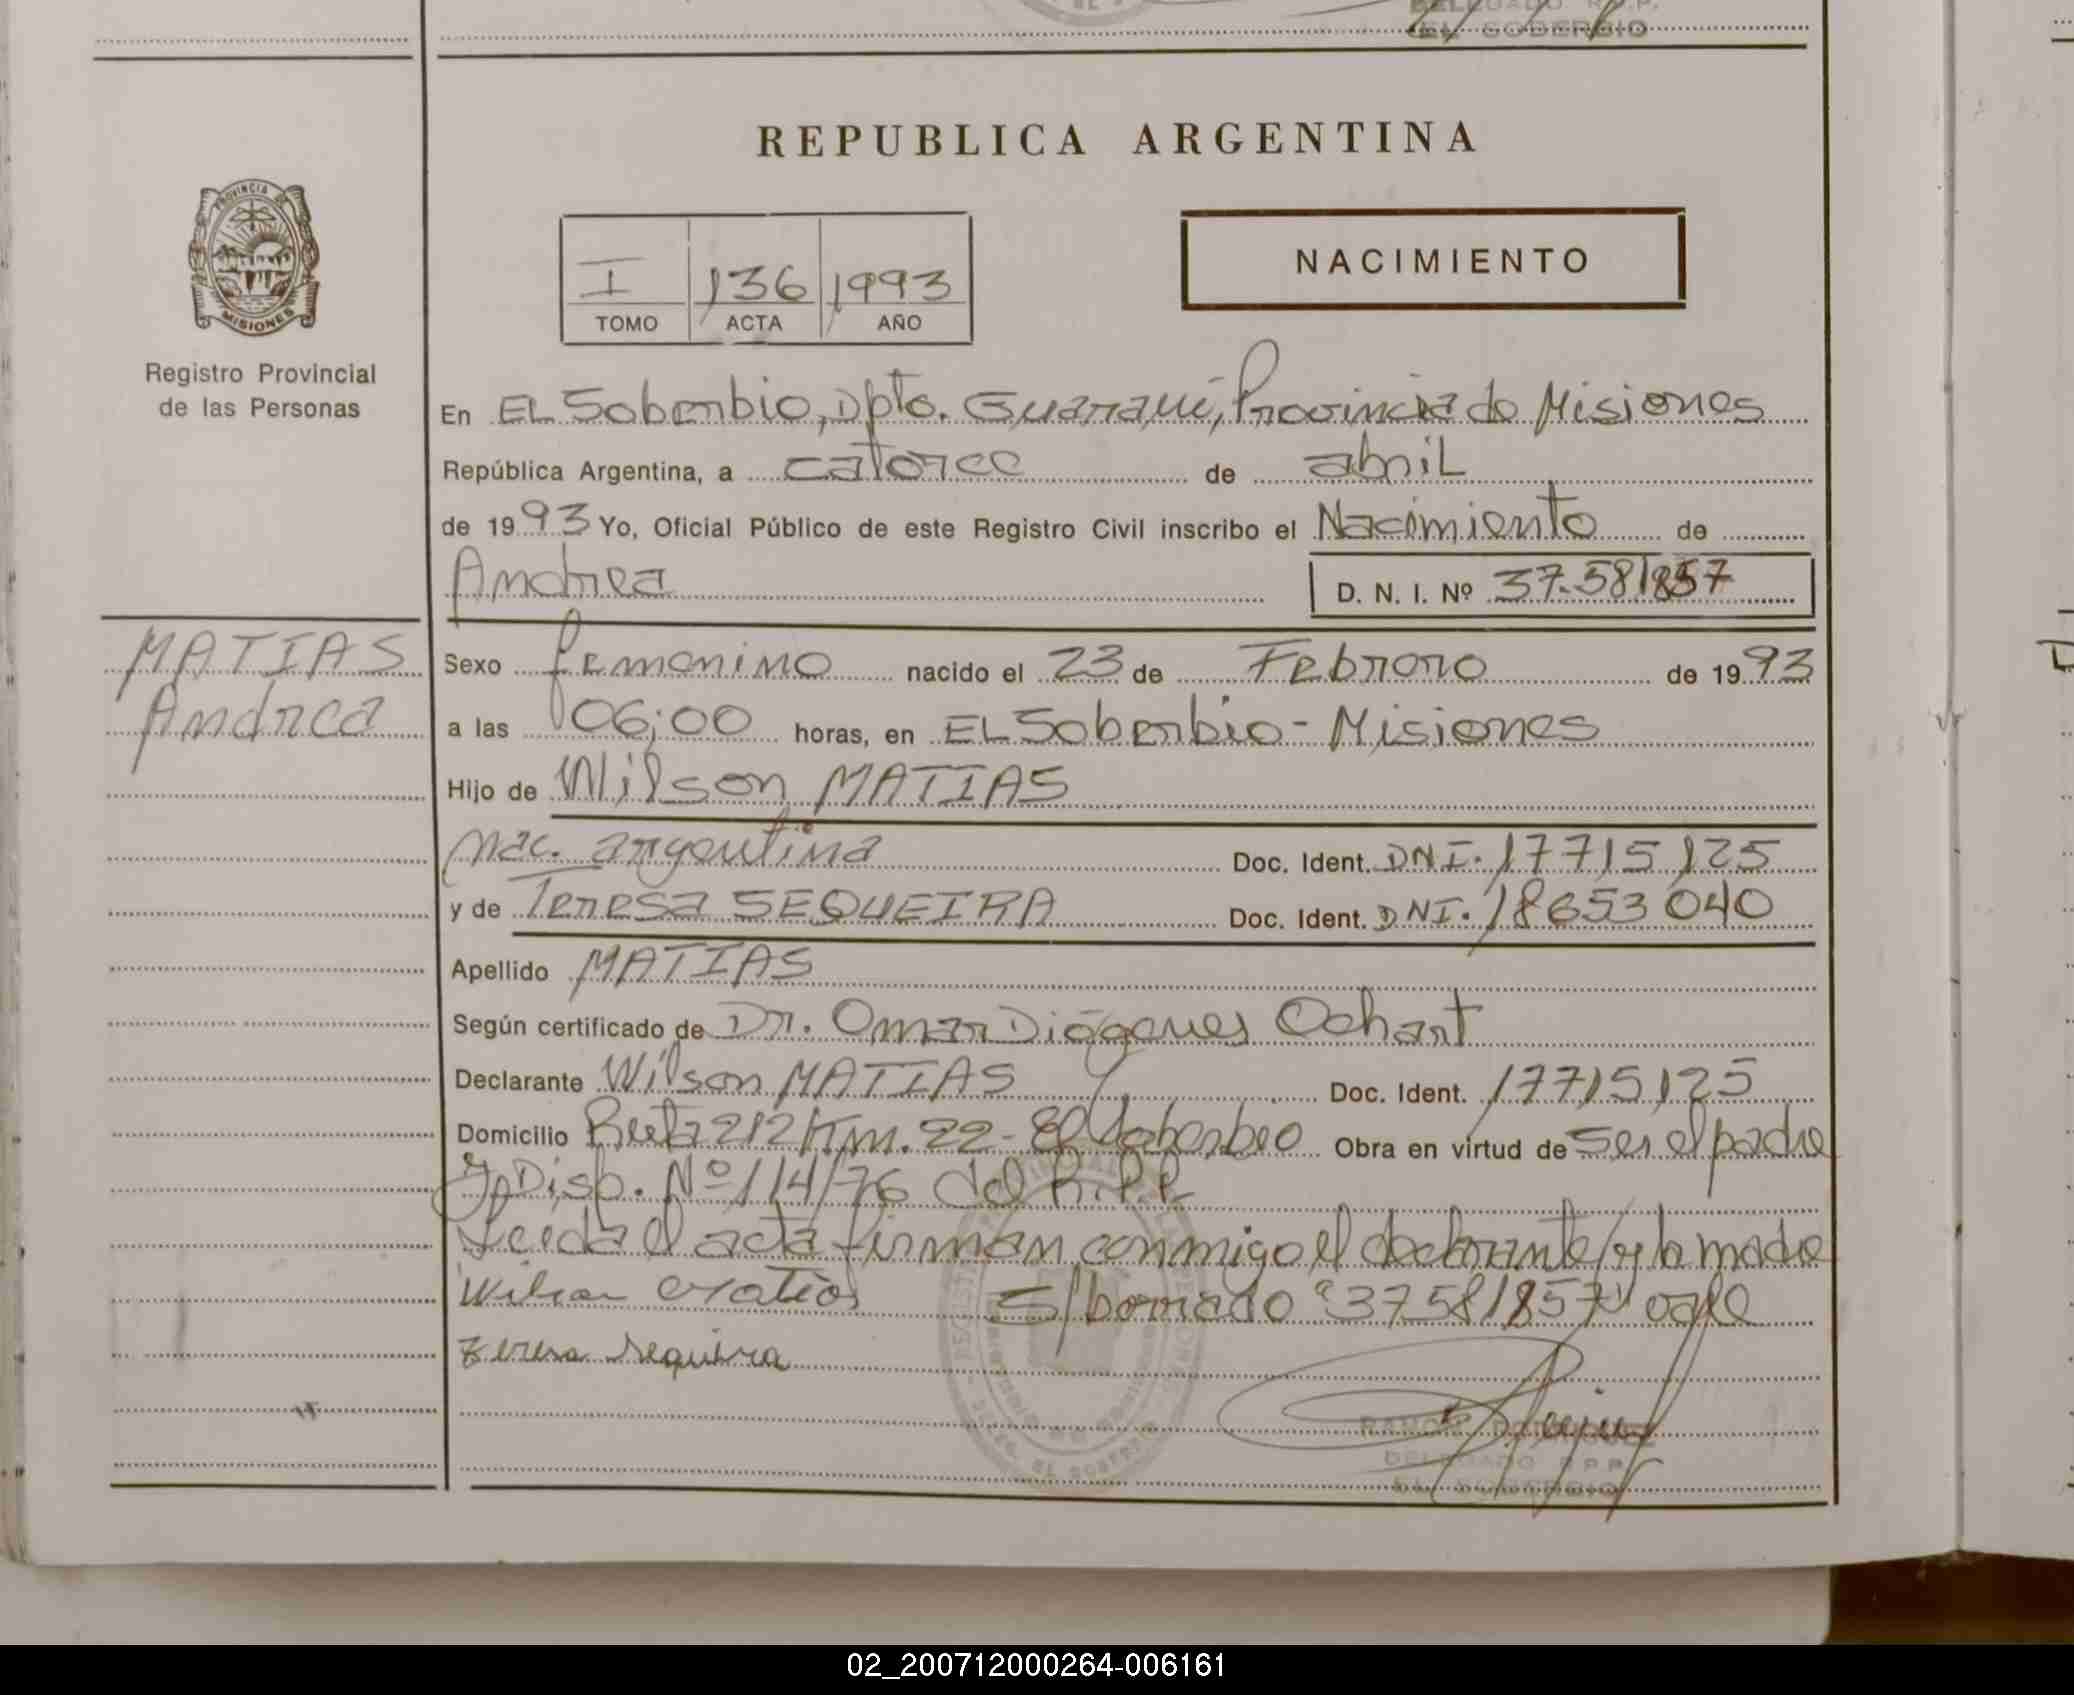 DELEGADO R.P.P.
EL SOBERBIO
REPUBLICA ARGENTINA
PROVINCIA DE
MISIONES
Registro Provincial
de las Personas
NACIMIENTO
I 136 1993
TOMO ACTA AÑO
En EL Soberbio, Dpto. Guaraní, Provincia de Misiones
República Argentina, a catorce de abril
de 1993 Yo, Oficial Público de este Registro Civil inscribo el Nacimiento de
Andrea D. N. I. Nº 37.581857
MATIAS
Andrea
Sexo femenino nacido el 23 de Febrero de 1993
a las 06:00 horas, en EL Soberbio - Misiones
Hijo de Wilson MATIAS
Nac. argentina Doc. Ident. DNI. 17715125
y de Teresa SEQUEIRA Doc. Ident. DNI. 18653040
Apellido MATIAS
Según certificado de Dr. Omar Diógenes Ochart
Declarante Wilson MATIAS Doc. Ident. 17715125
Domicilio Ruta 212 Km. 22 - El Soberbio Obra en virtud de ser el padre
y Disp. Nº 114/76 del R.P.P.
Leida el acta firman conmigo el declarante y la madre
Wilson Matias S/borrado "37581857" vale
Teresa Sequeira
RAMON RODRIGUEZ
DELEGADO R.P.P.
EL SOBERBIO
02_200712000264-006161